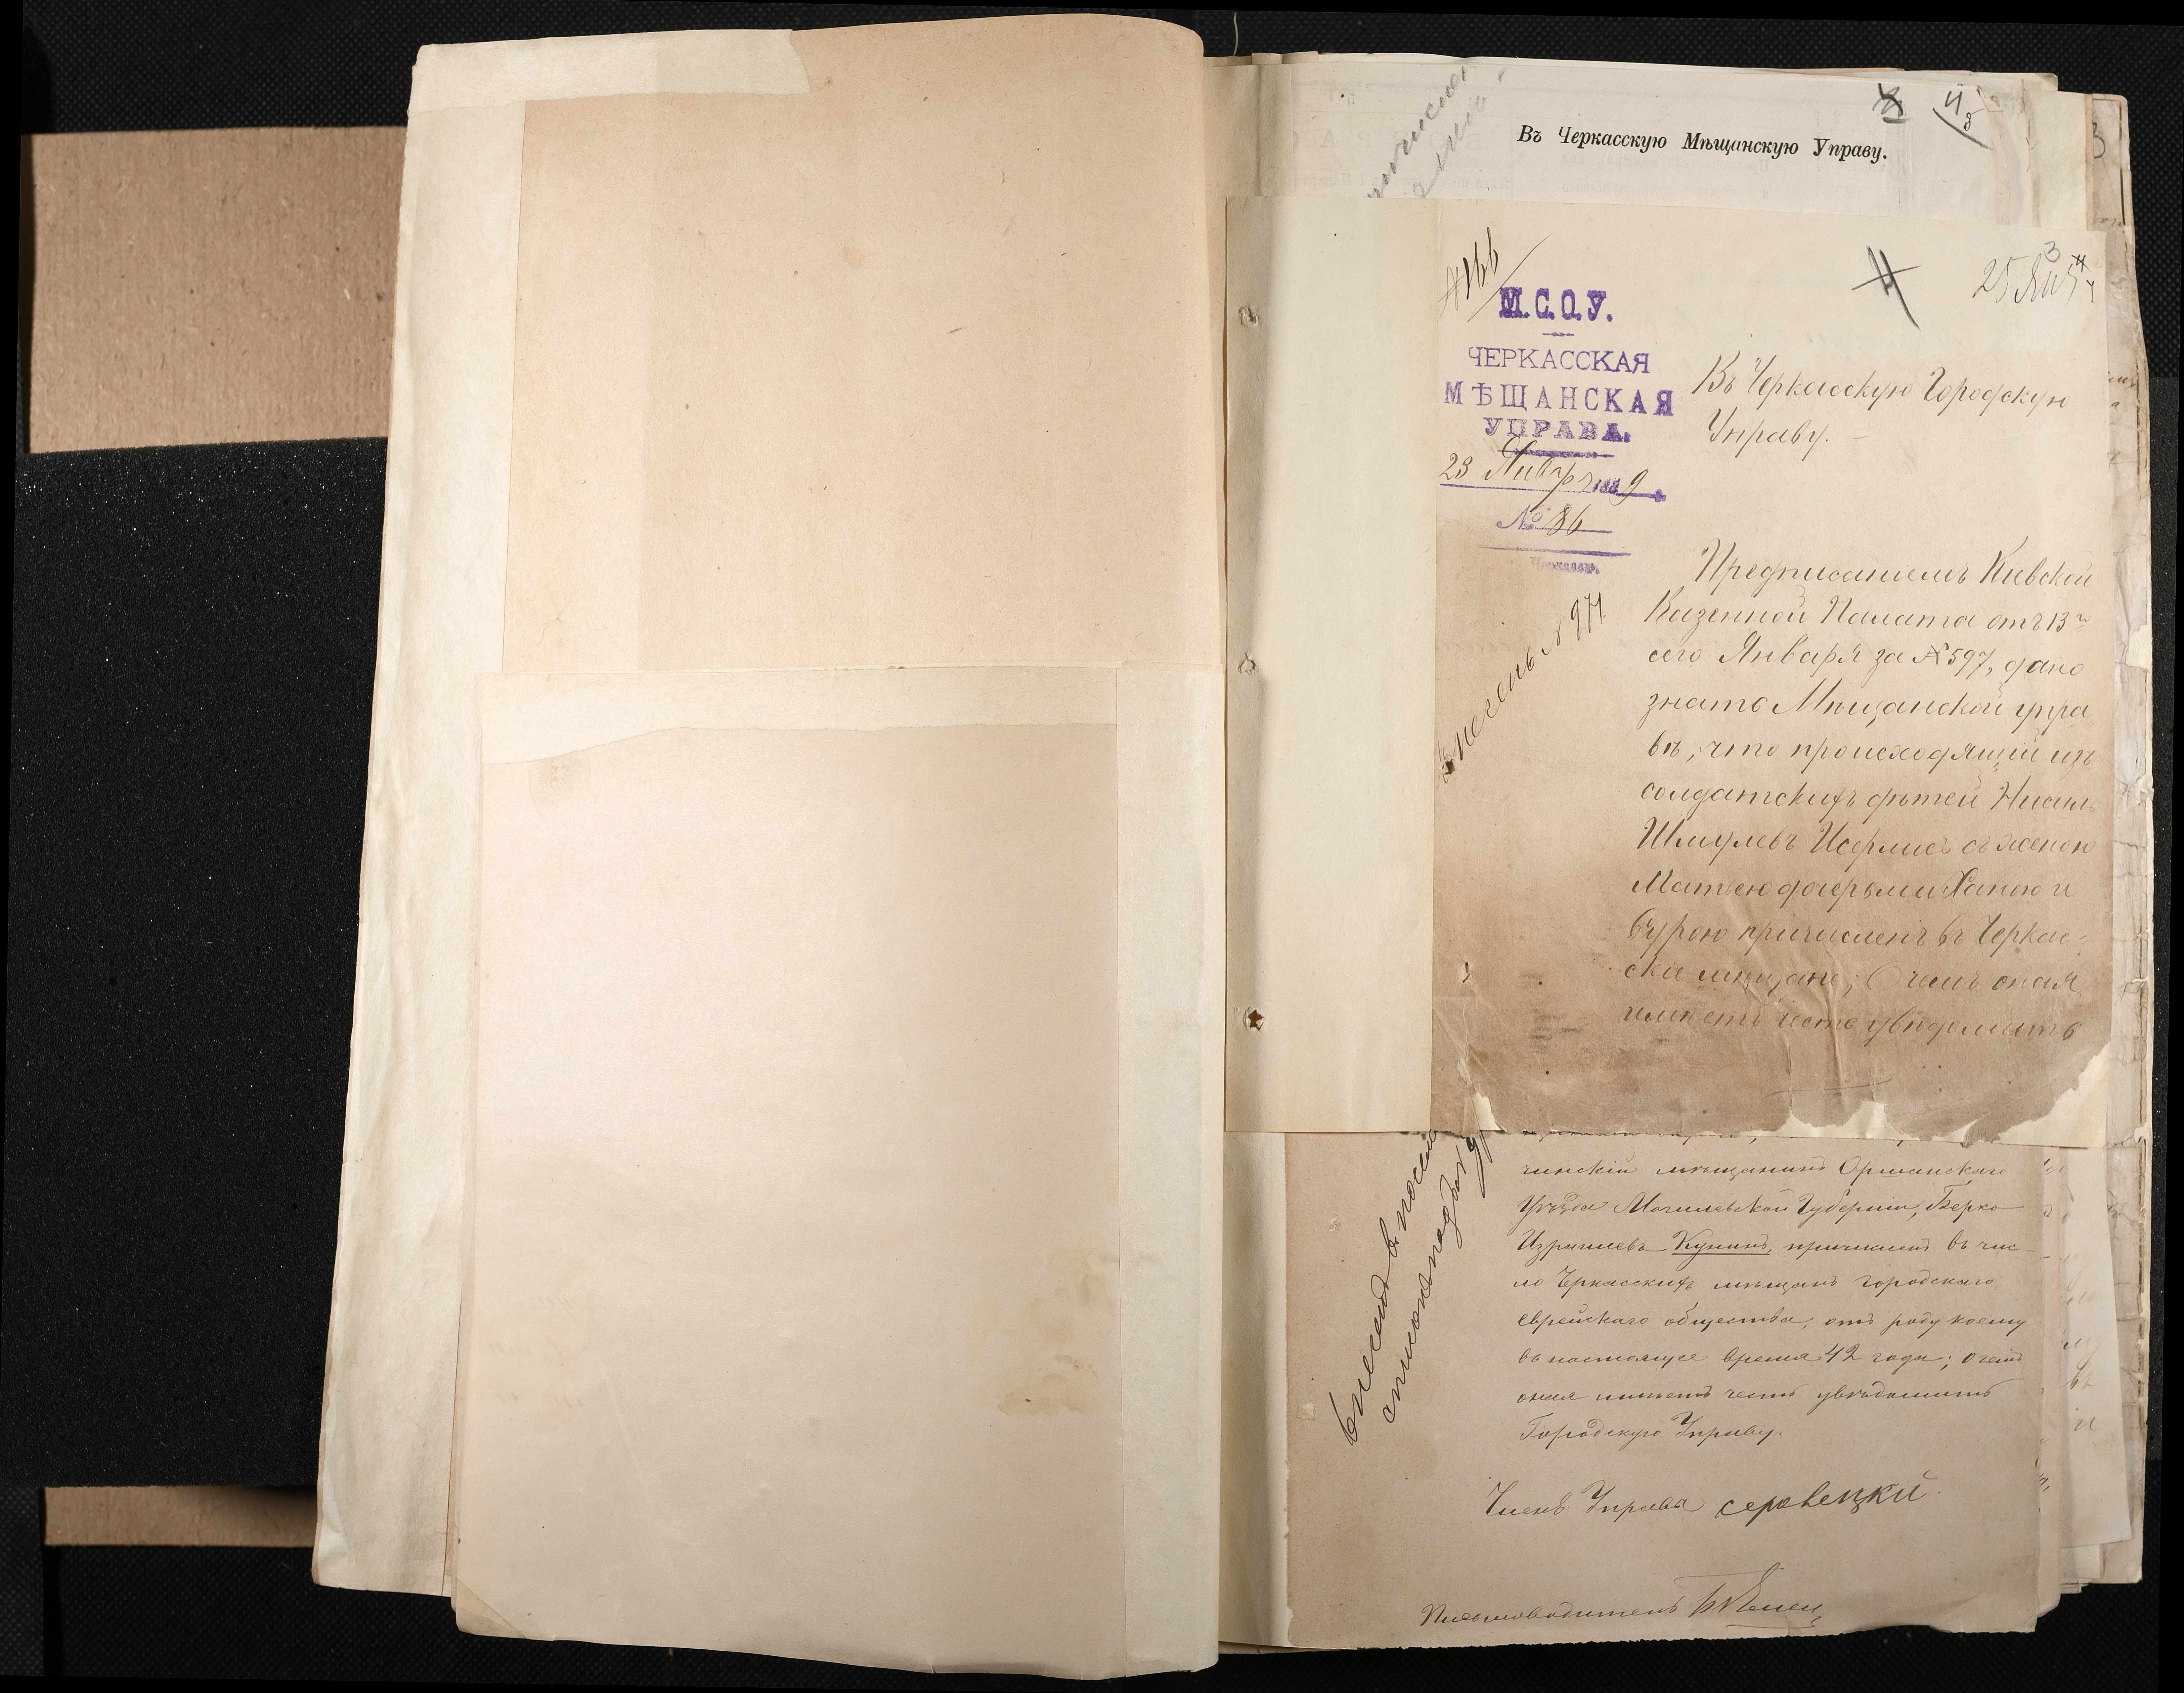 Въ Черкасскую Мѣщанскую Управу.
М.С.О.У.
ЧЕРКАССКАЯ
МѢЩАНСКАЯ
УПРАВА.
23 Января 1889
№ 86
Въ Черкасскую Городскую
Управу.
внесенъ № 971
Предписаніемъ Киевской
Казенной Палаты отъ 13го
сего Января за № 597, дано
знать Мѣщанской упра
вѣ, что происходящий изъ
солдатскихъ дѣтей
Шмулевъ съ женою
дочерьми Ханою и
причисленъ въ Черкас-
ские мѣщане; О чемъ оная
имѣетъ честь увѣдомить
внесенъ в посем
чинскій мѣщанинъ Оршанскаго
Уѣзда Могилевской Губерніи, Берко
Израилевъ Кунинъ, причисленъ въ чис-
ло Черкасскихъ мѣщанъ городскаго
еврейскаго общества, отъ роду коему
въ настоящее время 42 года; о чемъ
оная имѣетъ честь увѣдомить
Городскую Управу.
Членъ Управы
Письмоводитель